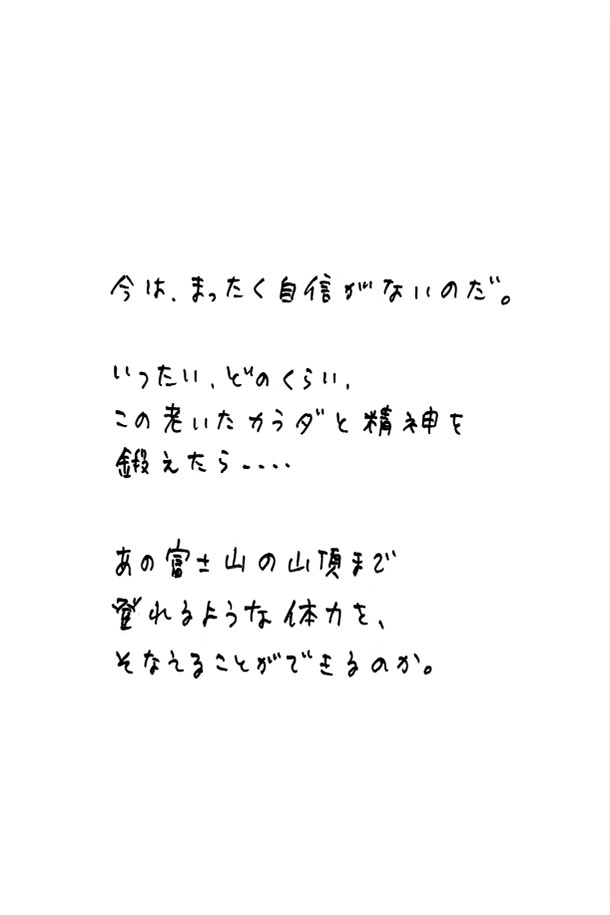 今は、まったく自信がないのだ。
いったい、どのくらい、
この老いたカラダと精神を
鍛えたら....
あの富士山の山頂まで
登れるような体力を、
そなえることができるのか。